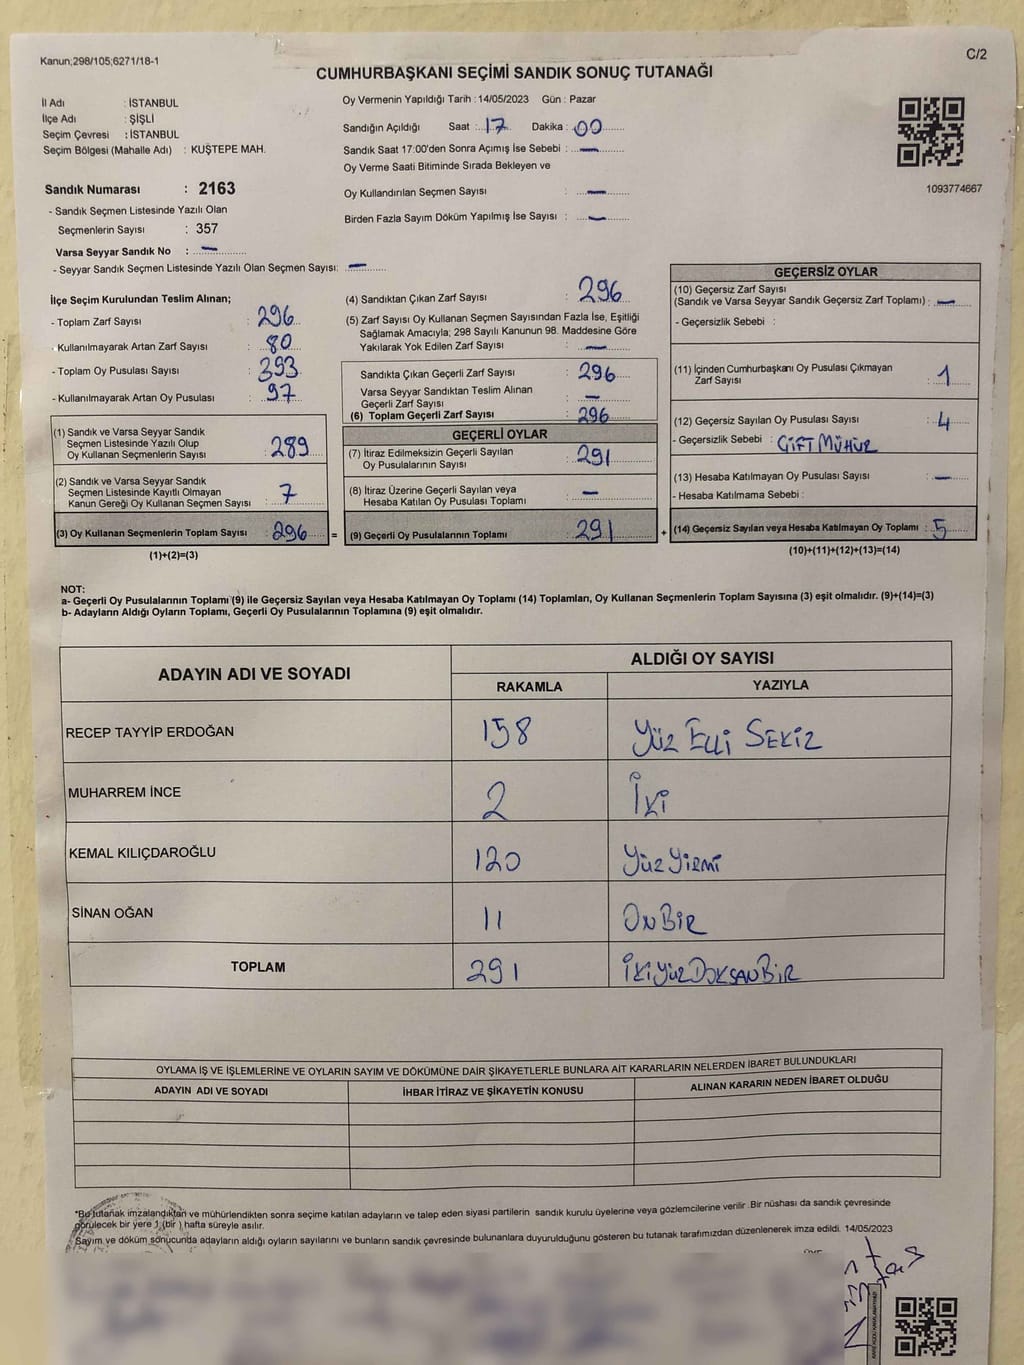 Kanun;298/105;6271/18-1
C/2
CUMHURBAŞKANI SEÇİMİ SANDIK SONUÇ TUTANAĞI
İl Adı : İSTANBUL
İlçe Adı : ŞİŞLİ
Seçim Çevresi : İSTANBUL
Seçim Bölgesi (Mahalle Adı) : KUŞTEPE MAH.
Sandık Numarası : 2163
- Sandık Seçmen Listesinde Yazılı Olan
Seçmenlerin Sayısı : 357
Varsa Seyyar Sandık No : —
- Seyyar Sandık Seçmen Listesinde Yazılı Olan Seçmen Sayısı: —
Oy Vermenin Yapıldığı Tarih : 14/05/2023 Gün : Pazar
Sandığın Açıldığı Saat : 17 Dakika : 00
Sandık Saat 17:00'den Sonra Açımış İse Sebebi : —
Oy Verme Saati Bitiminde Sırada Bekleyen ve
Oy Kullandırılan Seçmen Sayısı : —
Birden Fazla Sayım Döküm Yapılmış İse Sayısı : —
1093774667
İlçe Seçim Kurulundan Teslim Alınan;
- Toplam Zarf Sayısı : 296
- Kullanılmayarak Artan Zarf Sayısı : 80
- Toplam Oy Pusulası Sayısı : 393
- Kullanılmayarak Artan Oy Pusulası : 97
(1) Sandık ve Varsa Seyyar Sandık
Seçmen Listesinde Yazılı Olup
Oy Kullanan Seçmenlerin Sayısı : 289
(2) Sandık ve Varsa Seyyar Sandık
Seçmen Listesinde Kayıtlı Olmayan
Kanun Gereği Oy Kullanan Seçmen Sayısı : 7
(3) Oy Kullanan Seçmenlerin Toplam Sayısı : 296 =
(1)+(2)=(3)
(4) Sandıktan Çıkan Zarf Sayısı : 296
(5) Zarf Sayısı Oy Kullanan Seçmen Sayısından Fazla İse, Eşitliği
Sağlamak Amacıyla; 298 Sayılı Kanunun 98. Maddesine Göre
Yakılarak Yok Edilen Zarf Sayısı : —
Sandıkta Çıkan Geçerli Zarf Sayısı : 296
Varsa Seyyar Sandıktan Teslim Alınan
Geçerli Zarf Sayısı : —
(6) Toplam Geçerli Zarf Sayısı : 296
GEÇERLİ OYLAR
(7) İtiraz Edilmeksizin Geçerli Sayılan
Oy Pusulalarının Sayısı : 291
(8) İtiraz Üzerine Geçerli Sayılan veya
Hesaba Katılan Oy Pusulası Toplamı : —
(9) Geçerli Oy Pusulalarının Toplamı : 291 +
GEÇERSİZ OYLAR
(10) Geçersiz Zarf Sayısı
(Sandık ve Varsa Seyyar Sandık Geçersiz Zarf Toplamı) : —
- Geçersizlik Sebebi :
(11) İçinden Cumhurbaşkanı Oy Pusulası Çıkmayan
Zarf Sayısı : 1
(12) Geçersiz Sayılan Oy Pusulası Sayısı : 4
- Geçersizlik Sebebi : ÇİFT MÜHÜR
(13) Hesaba Katılmayan Oy Pusulası Sayısı : —
- Hesaba Katılmama Sebebi :
(14) Geçersiz Sayılan veya Hesaba Katılmayan Oy Toplamı : 5
(10)+(11)+(12)+(13)=(14)
NOT:
a- Geçerli Oy Pusulalarının Toplamı (9) ile Geçersiz Sayılan veya Hesaba Katılmayan Oy Toplamı (14) Toplamları, Oy Kullanan Seçmenlerin Toplam Sayısına (3) eşit olmalıdır. (9)+(14)=(3)
b- Adayların Aldığı Oyların Toplamı, Geçerli Oy Pusulalarının Toplamına (9) eşit olmalıdır.
ADAYIN ADI VE SOYADI
ALDIĞI OY SAYISI
RAKAMLA YAZIYLA
RECEP TAYYİP ERDOĞAN 158 Yüz Elli Sekiz
MUHARREM İNCE 2 İki
KEMAL KILIÇDAROĞLU 120 Yüz Yirmi
SİNAN OĞAN 11 OnBir
TOPLAM 291 İkiYüzDoksanBir
OYLAMA İŞ VE İŞLEMLERİNE VE OYLARIN SAYIM VE DÖKÜMÜNE DAİR ŞİKAYETLERLE BUNLARA AİT KARARLARIN NELERDEN İBARET BULUNDUKLARI
ADAYIN ADI VE SOYADI İHBAR İTİRAZ VE ŞİKAYETİN KONUSU ALINAN KARARIN NEDEN İBARET OLDUĞU
*Bu tutanak imzalandıktan ve mühürlendikten sonra seçime katılan adayların ve talep eden siyasi partilerin sandık kurulu üyelerine veya gözlemcilerine verilir. Bir nüshası da sandık çevresinde
görülecek bir yere 1 (bir ) hafta süreyle asılır.
Sayım ve döküm sonucunda adayların aldığı oyların sayılarını ve bunların sandık çevresinde bulunanlara duyurulduğunu gösteren bu tutanak tarafımızdan düzenlenerek imza edildi. 14/05/2023